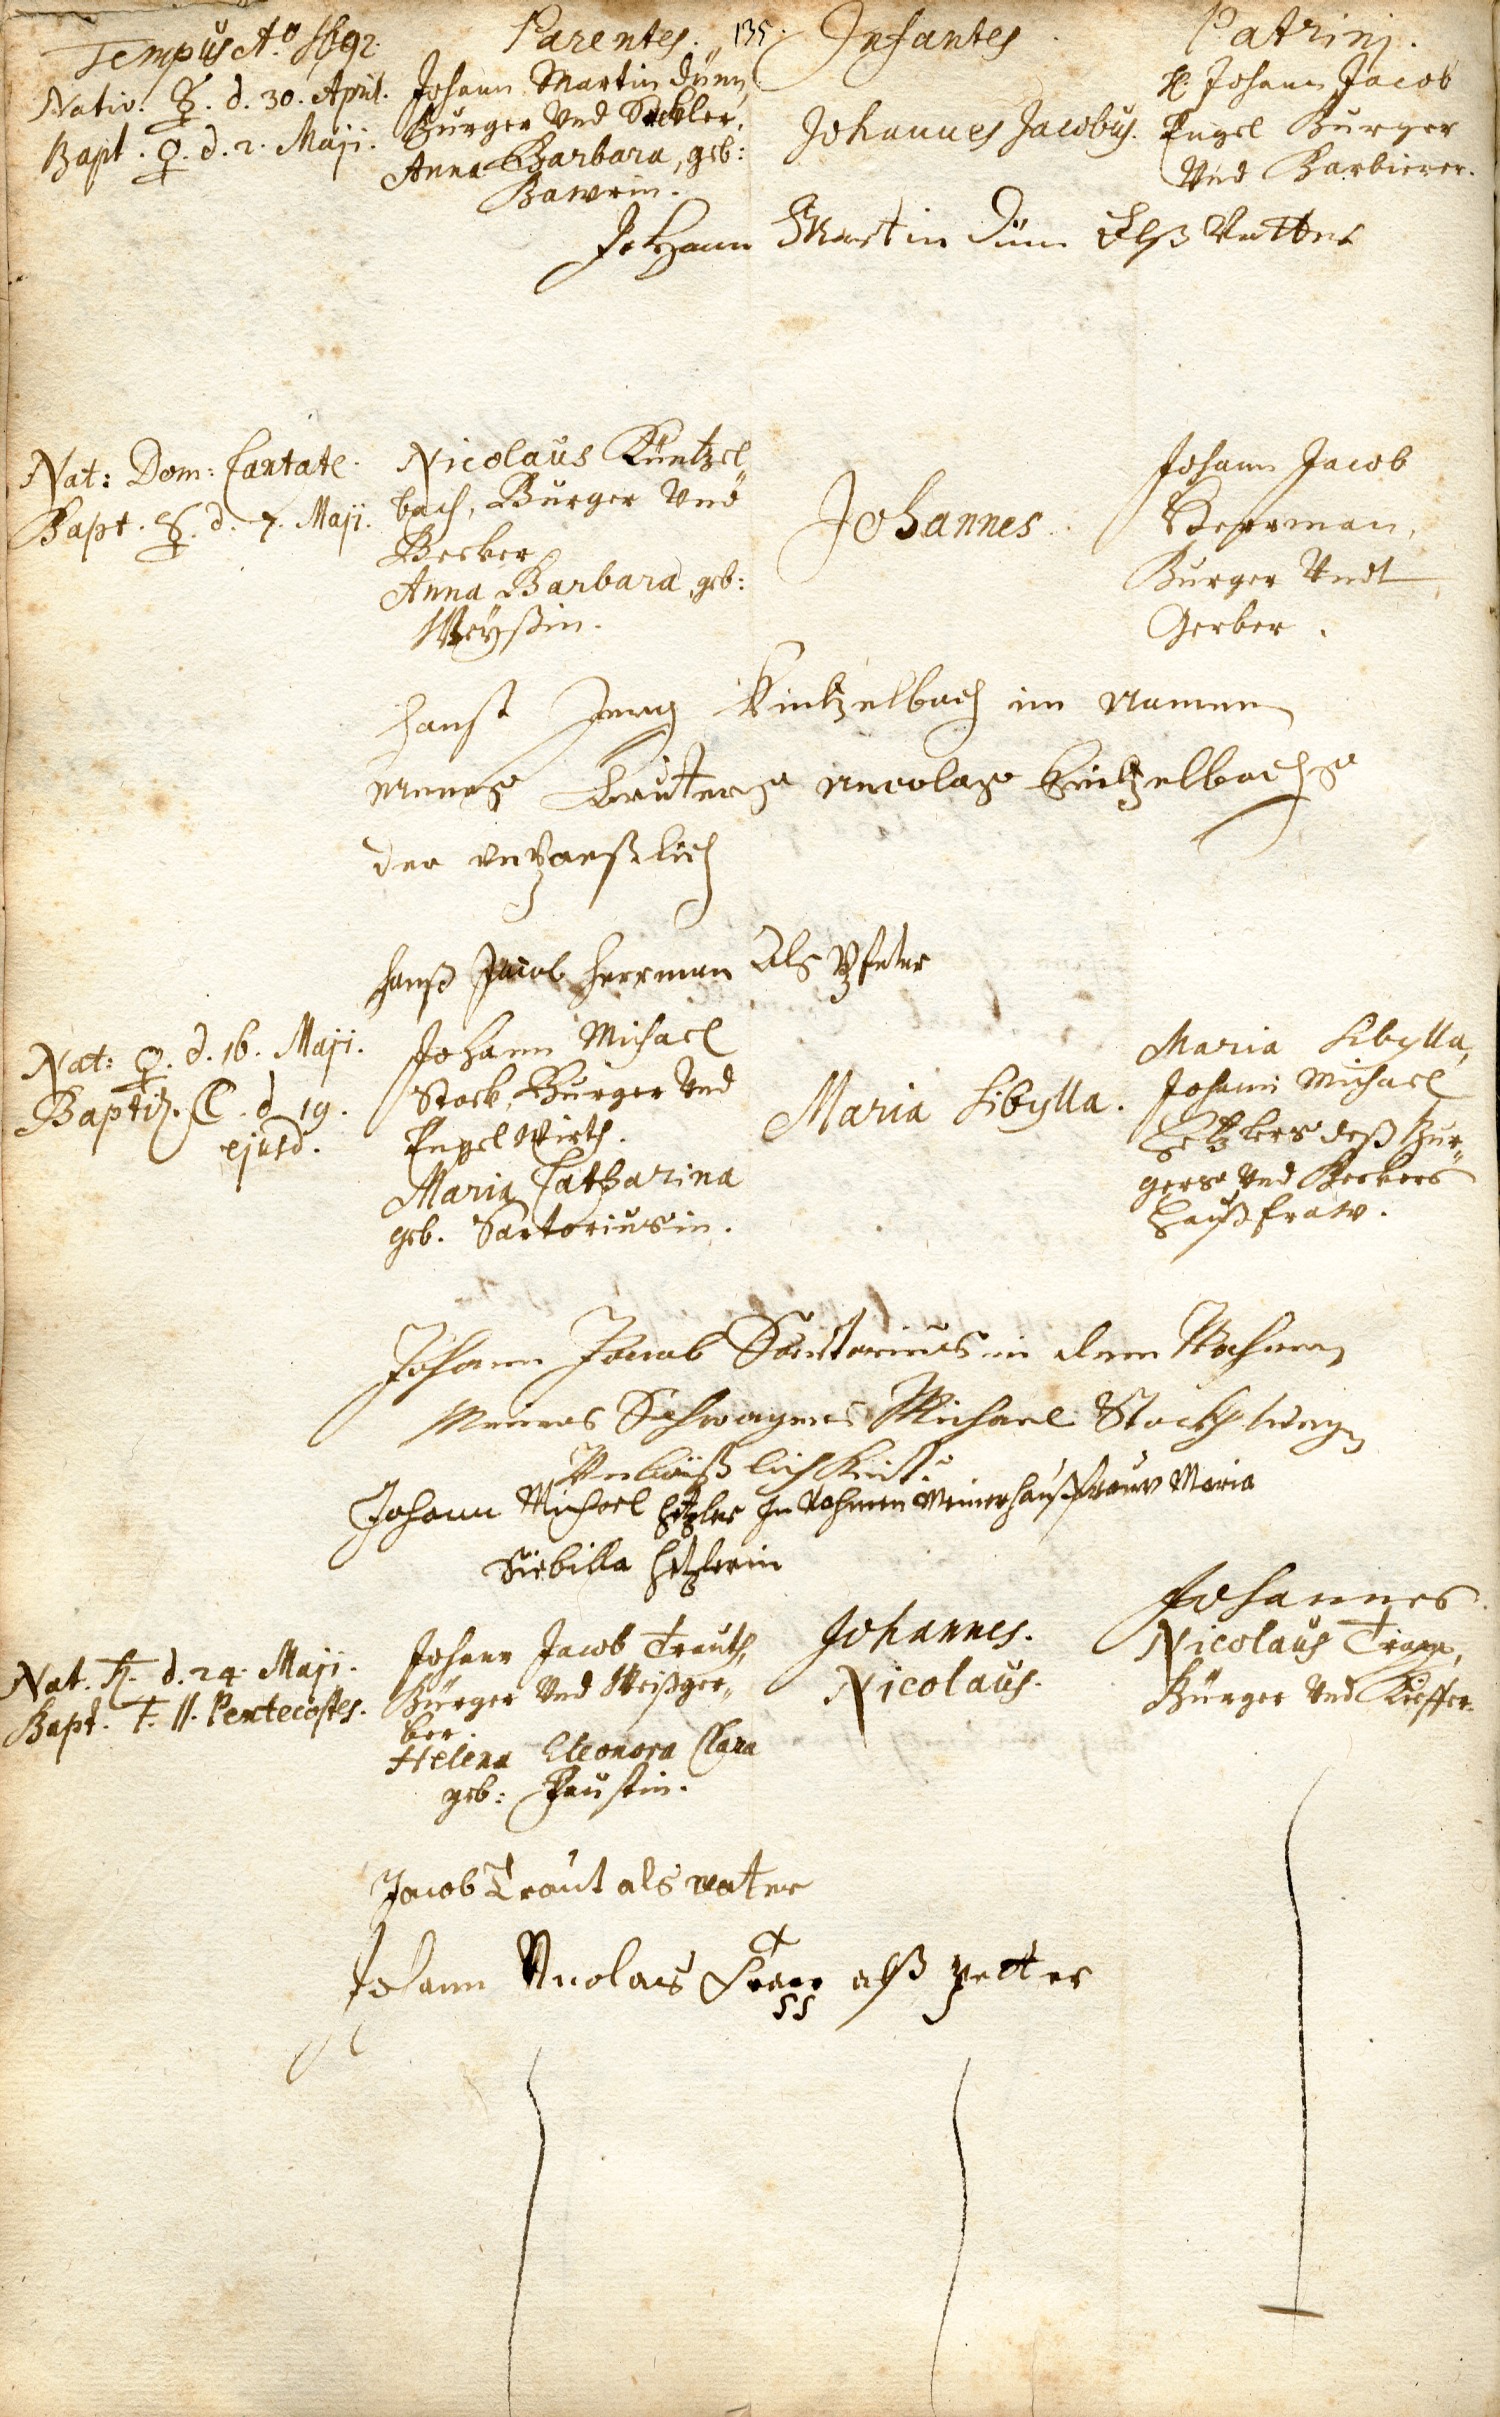 Tempus Aº 1692. Parentes. 135. Infantes. Patrini.
Nativ. ☿. d. 30. April.
Bapt. ♀. d. 2. Maji.
Johann Martin Dünn
Burger Und Seckler,
Anna Barbara, geb:
Bawrin.
Johannes Jacobus.
H. Johann Jacob
Engel Burger
Und Barbierer.
Johann Martin Dünn Alß Vatter
Nat: Dom: Cantate.
Bapt. ☿. d. 7. Maji.
Nicolaus Küntzel
bach, Burger Und
Becker
Anna Barbara, geb:
Weyßin.
Johannes.
Johann Jacob
Herrman,
Burger Undt
Gerber.
Hanß Jerg Kintzelbach im namen
meines bruters Kintzelbachs
der
hanß Jacob herrman Als Pfeter
Nat: ♀. d. 16. Maji.
Baptiz. ☾. d. 19.
ejusd.
Johann Michael
Stock, Burger Und
Engel Wirth.
Maria Catharina
geb. Sartoriusin.
Maria Sibylla.
Maria Sibylla,
Johann Michael
Hetzlers deß Bur„
gers Und Beckers
Haußfraw.
Johann Jacob Sartorius in dem Nahmen
Meines Schwagers Michael Stock
Johann Michael Hetzler In Nahmen Meiner haußfrauw Maria
Siebilla Hetzlerin
Nat. ♄. d. 24. Maji.
Bapt. F. II. Pentecostes.
Johann Jacob Trauth,
Bürger Und Weißger„
ber.
Helena Eleonora Clara
geb: Faustin.
Johannes.
Nicolaus.
Johannes
Nicolaus Trapp,
Bürger Und Kieffer.
Jacob Traut als vater
Johann Nicolaus Trapp alß petter